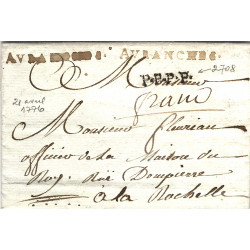 AVRANCHES AVRANCHES
2708
Monsieur
P.P.P.P.
franc
21 avril
1776
Monsieur fleuriau
officier de la Maison du
Roy Rüe Dompierre
à la Rochelle